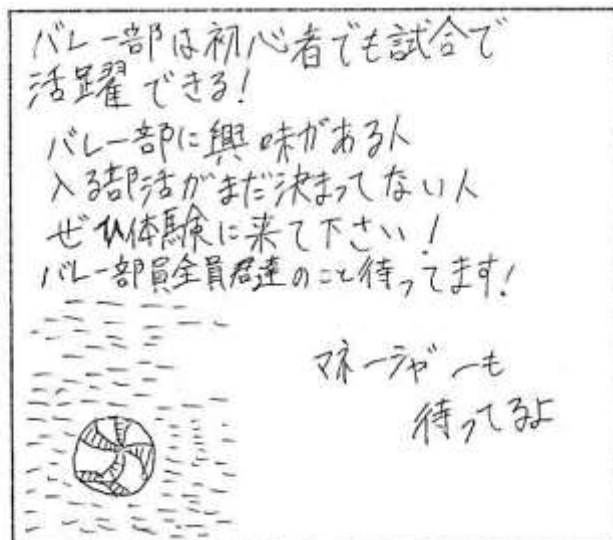 バレー部は初心者でも試合で
活躍できる!
バレー部に興味がある人
入る部活がまだ決まってない人
ぜひ体験に来て下さい!
バレー部員全員君達のこと待ってます!
マネージャーも
待ってるよ